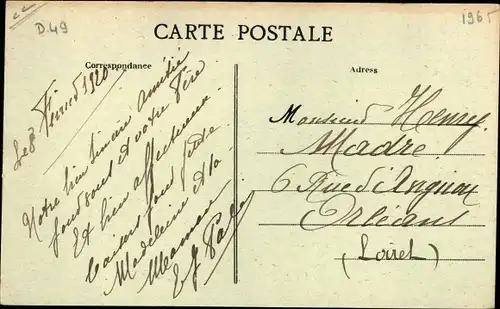 D.49
1965
CARTE POSTALE
Correspondance
Adress
Le 8 Février 1920
Notre bien sincère amitié
pour vous et votre Père
Et bien affectueux
baisers pour petite
Madeleine et la
Maman
Monsieur Henry
Madre
6 Rue d'Anguou
Orléans
(Loiret)